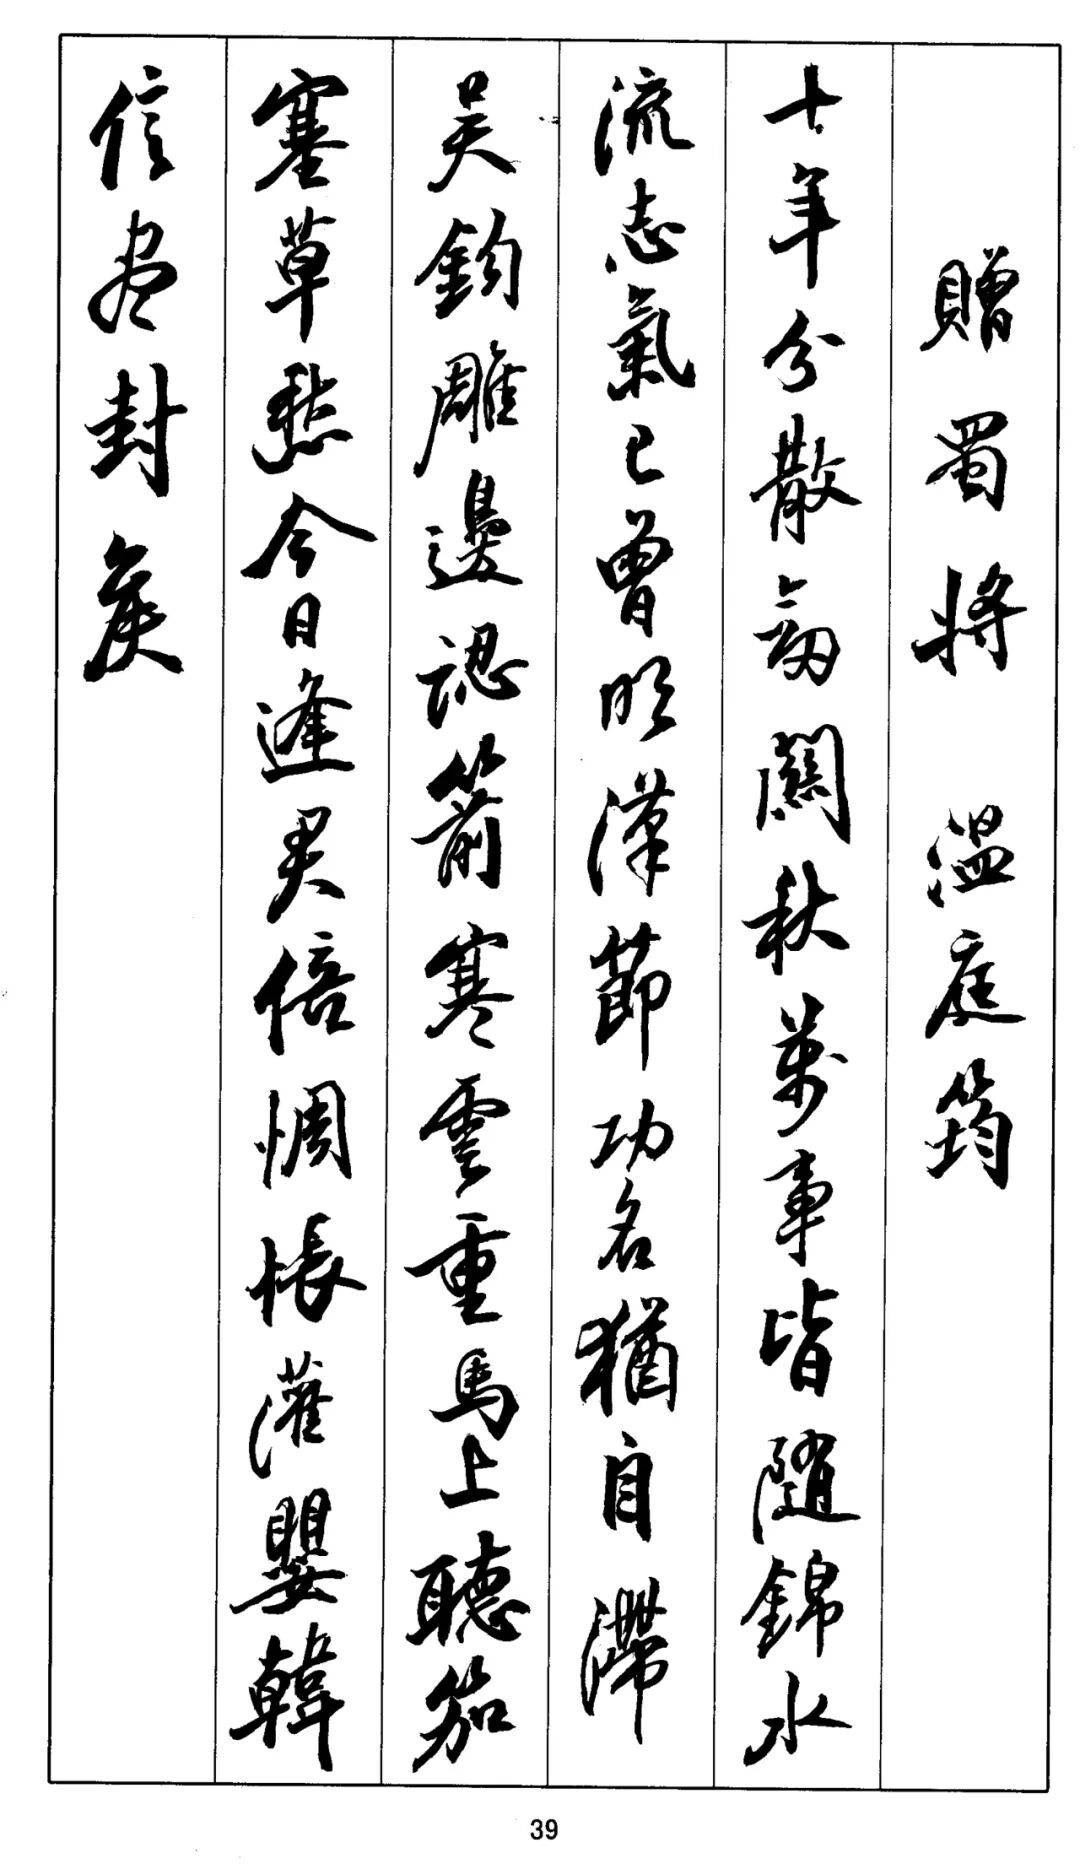 贈蜀將 溫庭筠
十年分散劍關秋萬事皆隨錦水
流志氣已曾明漢節功名猶自滯
吴鈎雕邊認箭寒雲重馬上聽笳
塞草愁今日逢君倍惆悵灌嬰韓
信盡封侯
39